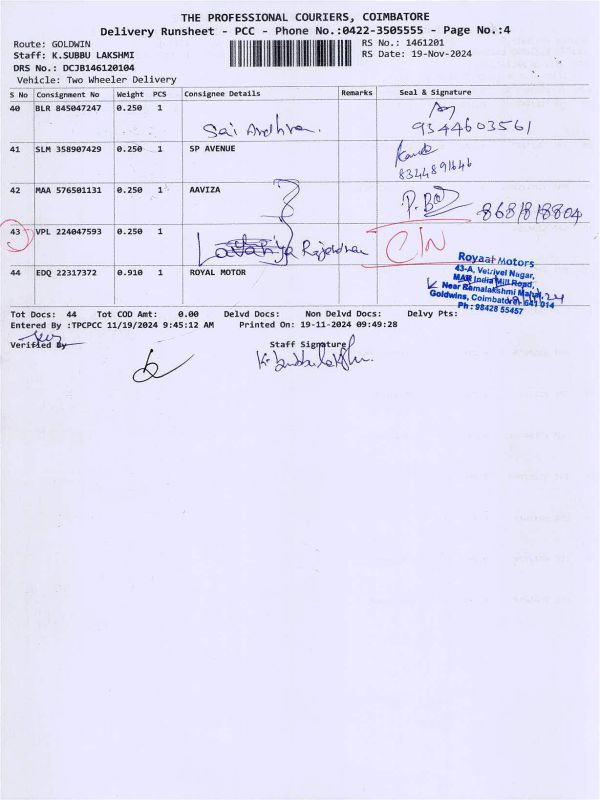 THE PROFESSIONAL COURIERS, COIMBATORE
Delivery Runsheet - PCC - Phone No.:0422-3505555 - Page No.:4
Route: GOLDWIN RS No.: 1461201
Staff: K.SUBBU LAKSHMI RS Date: 19-Nov-2024
DRS No.: DCJB146120104
Vehicle: Two Wheeler Delivery
S No Consignment No Weight PCS Consignee Details Remarks Seal & Signature
40 BLR 845047247 0.250 1
Sai 9344603561
41 SLM 358907429 0.250 1 SP AVENUE
8344891646
42 MAA 576501131 0.250 1 AAVIZA
P. 868/8/8804
43 VPL 224047593 0.250 1
C/N
44 EDQ 22317372 0.910 1 ROYAL MOTOR
Royaal Motors
43-A, Vetrivel Nagar,
MAR India Mill Road,
Near Ramalakshmi Mahal,
Goldwins, Coimbatore - 641 014
Ph : 98428 55457
Tot Docs: 44 Tot COD Amt: 0.00 Delvd Docs: Non Delvd Docs: Delvy Pts:
Entered By :TPCPCC 11/19/2024 9:45:12 AM Printed On: 19-11-2024 09:49:28
Verified By Staff Signature